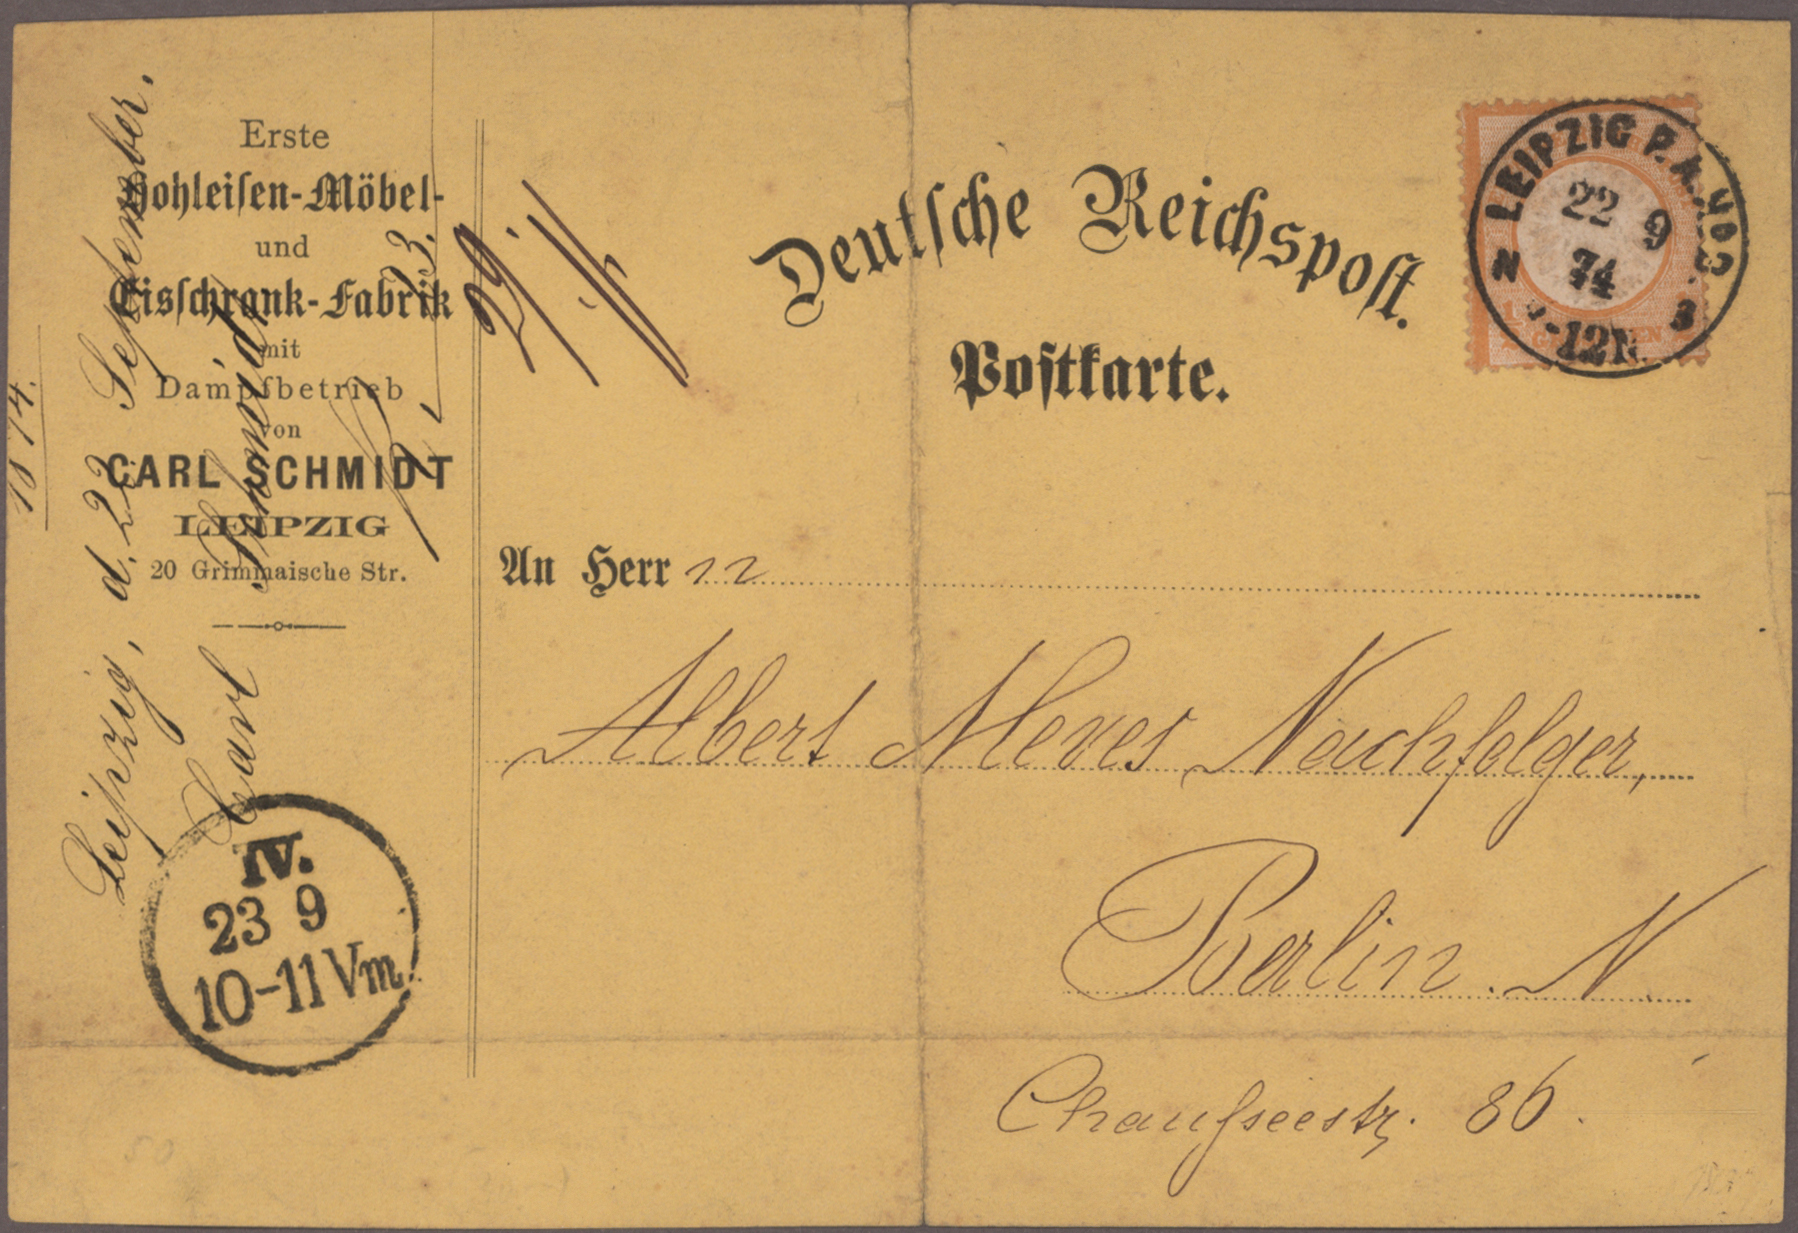 Erste
Hohleisen-Möbel-
und
Eisschrank-Fabrik
mit
Dampfbetrieb
von
CARL SCHMIDT
LEIPZIG
20 Grimmaische Str.
Leipzig, d. 22 September.
1874.
Carl Schmidt
Deutsche Reichspost.
Postkarte.
LEIPZIG P.A.
22 9
74
-12N.
N
3
An Herrn
Albert Meves Nachfolger,
Berlin. N.
Chaußeestr. 86.
IV.
23 9
10-11 Vm.